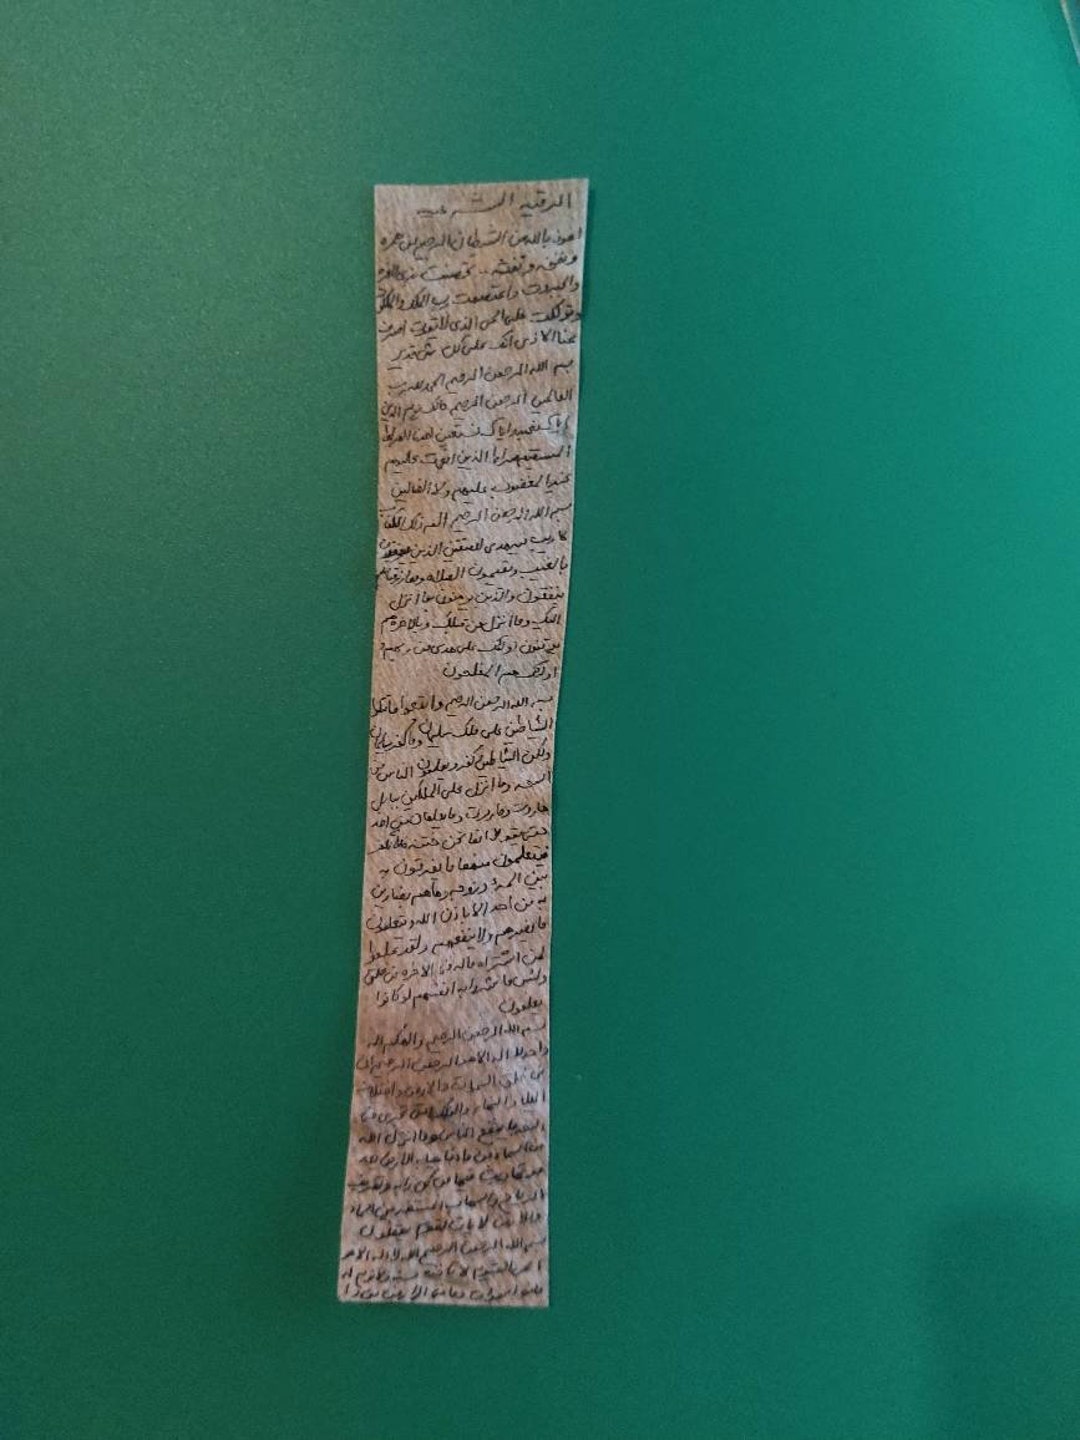 الرقيه الشرعيه
اعوذ بالله من الشيطان الرجيم من همزه
ونفخه ونفثه .. تحصنت بذي العزه
والجبروت واعتصمت برب الملك والملكوت
وتوكلت على الحي الذي لا يموت اصرف
عنا الاذى انك على كل شئ قدير
بسم الله الرحمن الرحيم الحمد لله رب
العالمين الرحمن الرحيم مالك يوم الدين
اياك نعبد واياك نستعين اهدنا الصراط
المستقيم صراط الذين انعمت عليهم
غير المغضوب عليهم ولا الضالين
بسم الله الرحمن الرحيم الم ذلك الكتاب
لا ريب فيه هدى للمتقين الذين يومنون
بالغيب ويقيمون الصلاه ومما رزقناهم
ينفقون والذين يومنون بما انزل
اليك وما انزل من قبلك وبالاخره هم
يوقنون اولئك على هدى من ربهم و
اولئك هم المفلحون
بسم الله الرحمن الرحيم واتبعوا ما تتلوا
الشياطين على ملك سليمان وما كفر سليمان
ولكن الشياطين كفرو يعلمون الناس
السحر وما انزل على الملكين ببابل
هاروت وماروت وما يعلمان من احد
حتى يقولا انما نحن فتنه فلا تكفر
فيتعلمون منهما ما يفرقون به
بين المرء وزوجه وماهم بضارين
به من احد الا باذن الله ويتعلمون
ما يضرهم ولا ينفعهم ولقد علموا
لمن اشتراه ماله في الاخره من خلق
ولبئس ما شروا به انفسهم لو كانوا
يعلمون
بسم الله الرحمن الرحيم والهكم اله
واحد لا اله الا هو الرحمن الرحيم ان
في خلق السموات والارض واختلاف
اليل والنهار والفلك التي تجري في
البحر بما ينفع الناس وما انزل الله
من السماء من ماء فاحيا به الارض بعد
موتها وبث فيها من كل دابه وتصريف
الرياح والسحاب المسخر بين السماء
والارض لايات لقوم يعقلون
بسم الله الرحمن الرحيم الله لا اله الا هو
الحي القيوم لا تاخذه سنه ولا نوم له
مافي السموات وما في الارض من ذا